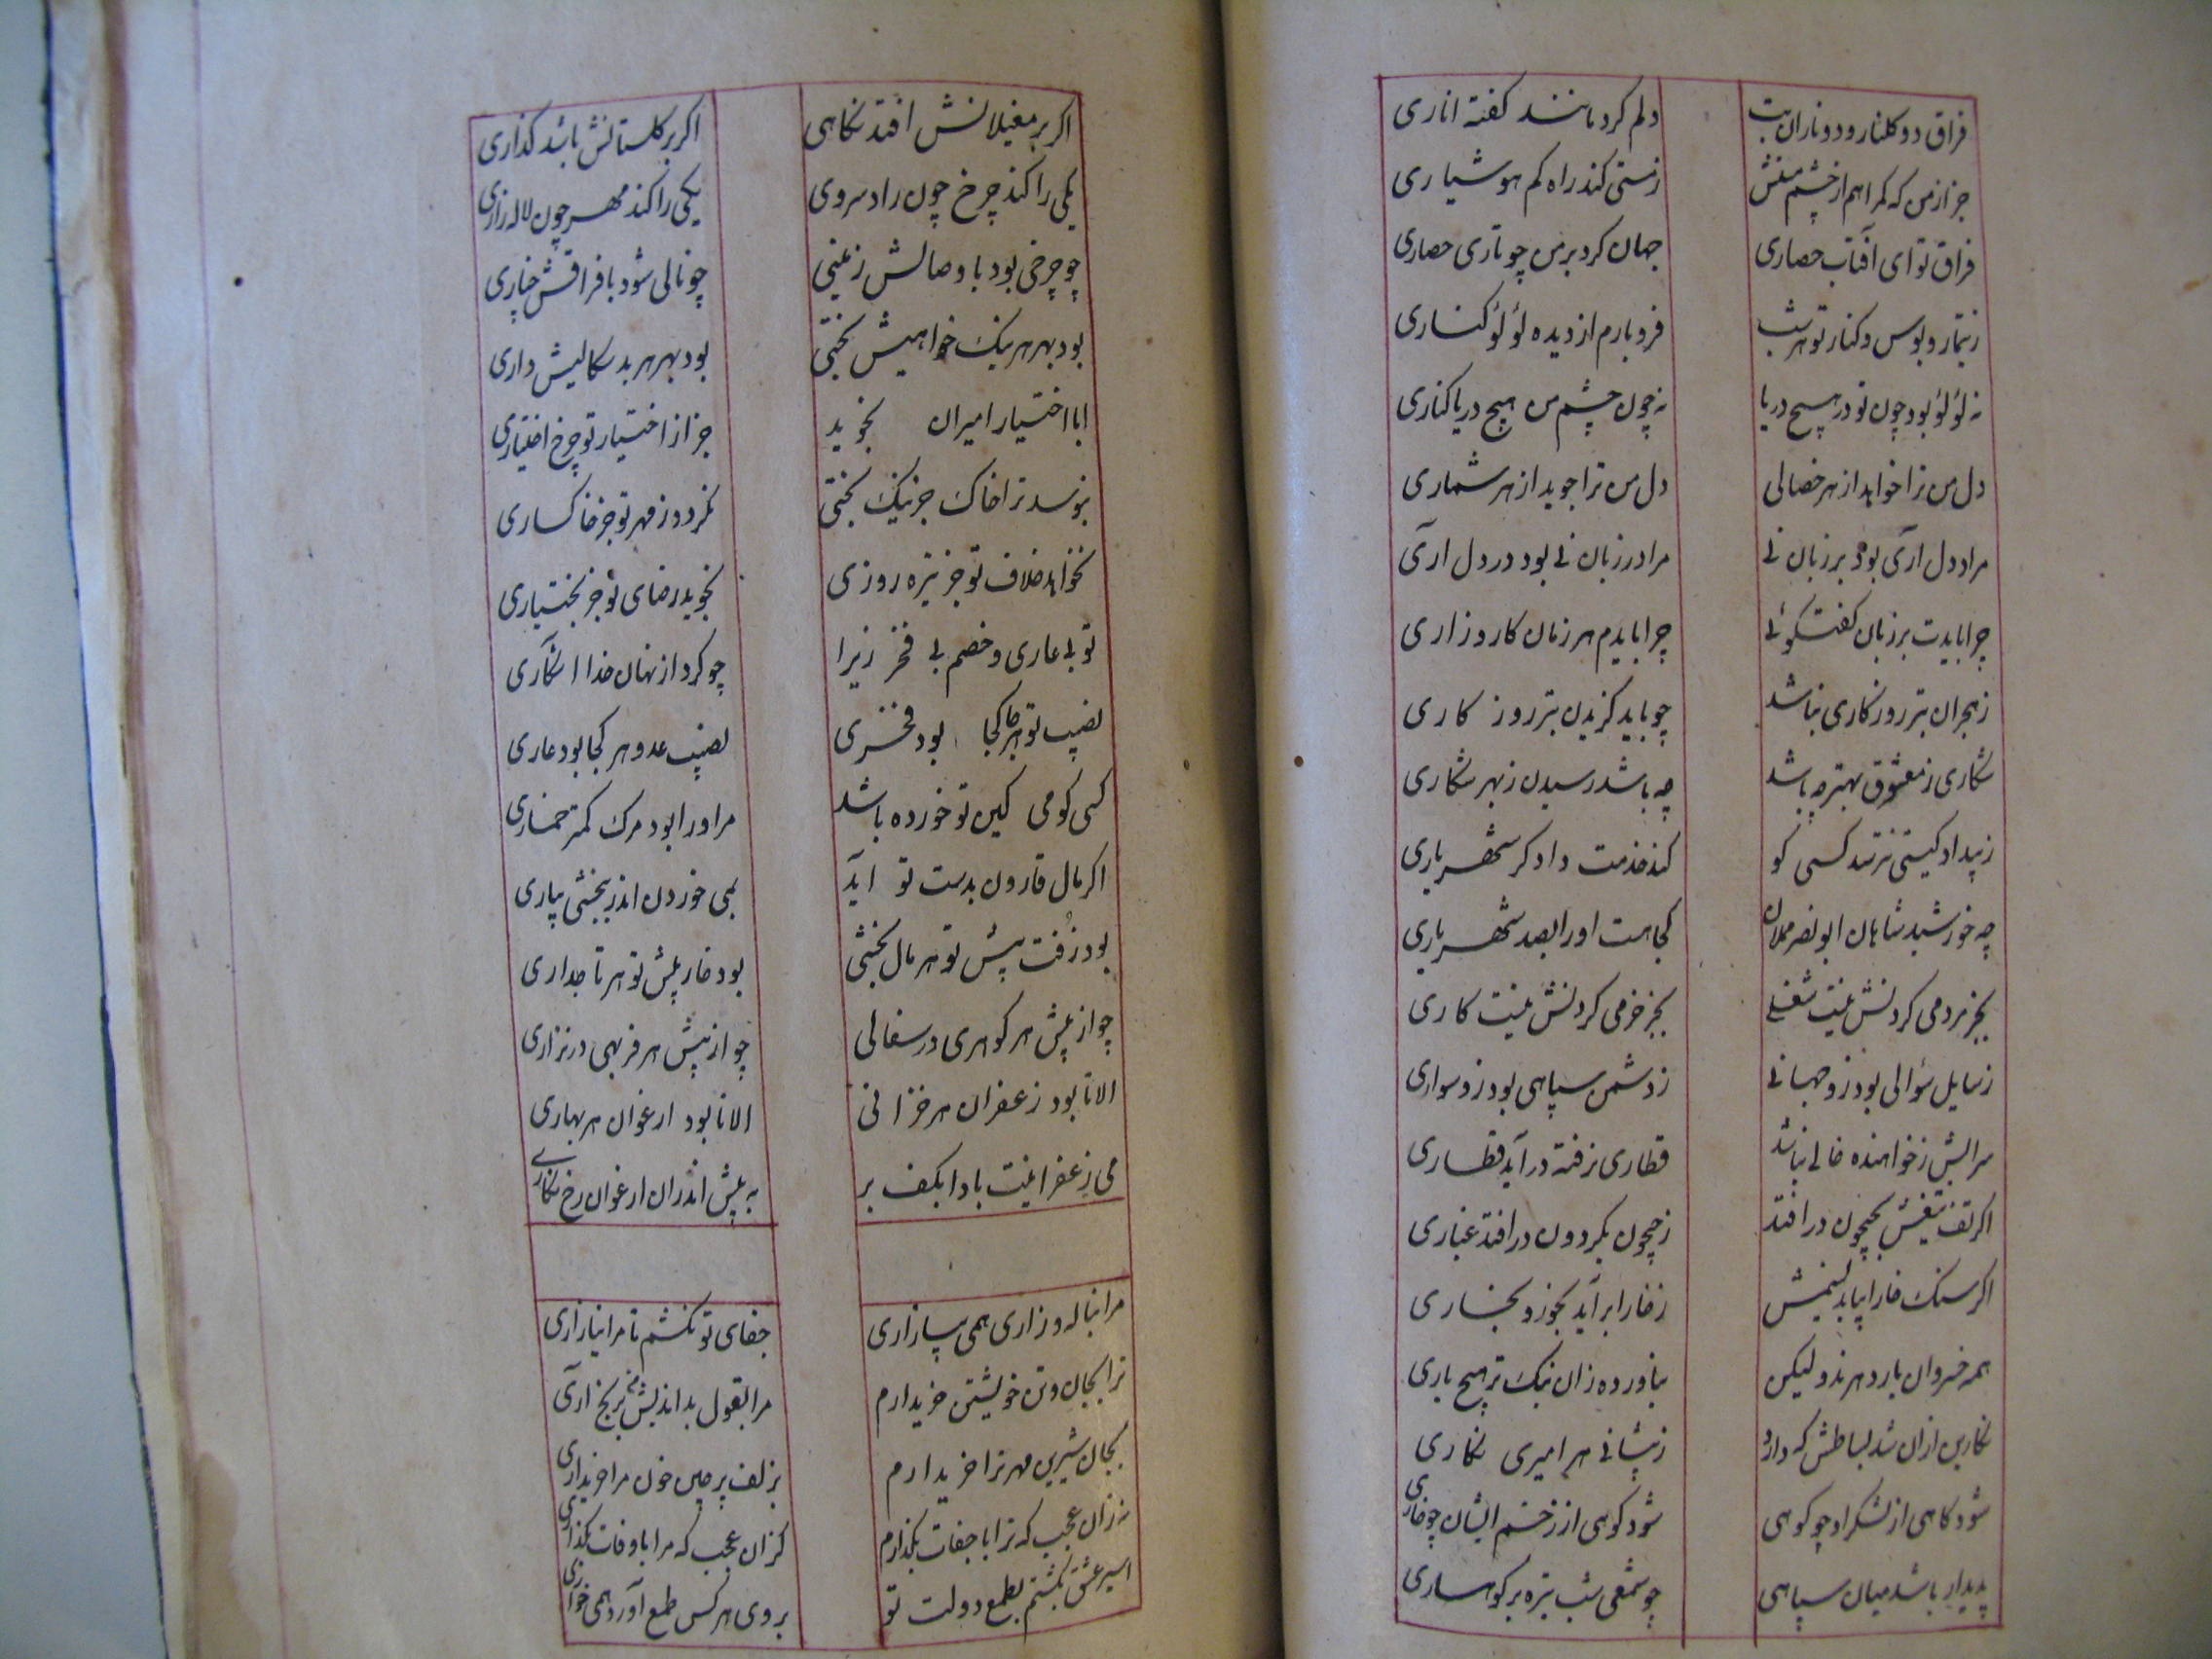 فراق دو کلنار و دو ناران بت دلم کرد مانند کفته اناری
جز از من که کمراهم از چشم مستش ز مستی کند راه کم هوشیاری
فراق تو ای آفتاب حصاری جهان کرد بر من چو تاری حصاری
ز تیمار و بوس و کنار تو هر شب فرو بارم از دیده لؤلؤ کناری
نه لؤلؤ بود چون تو در هیچ دریا نه چون چشم من هیچ دریا کناری
دل من ترا خواهد از هر خصالی دل من ترا جوید از هر شماری
مرا در دل آری بود بر زبان نی مرا در زبان نی بود در دل آری
چرا بایدت بر زبان کفتکوئی چرا بایدم هر زمان کارزاری
ز هجران بتر روزکاری نباشد چو باید کزیدن بتر روز کاری
شکاری ز معشوق بهتر چه باشد چه باشد رسیدن ز بهر شکاری
ز بیداد کیتی نترسد کسی کو کند خدمت دادکر شهریاری
چه خورشید شاهان ابونصر مملان کجا هست او را بصد شهریاری
بجز مردمی کردنش نیست شغلی بجز خرمی کردنش نیست کاری
ز سایل سؤالی بود زو جهانی ز دشمن سپاهی بود زو سواری
سرایش ز خواهنده خالی نباشد قطاری نرفته در آید قطاری
اکر تف تیغش بجیحون در افتد ز جیحون بکردون در افتد غباری
اکر سنک خارا بیابد نسیمش ز خارا بر آید بجوز و بخاری
همه خسروان بار دهرند ولیکن نیاورده زان نیک تر هیچ باری
نکارین از آن شد بساطش که دارد ز پیشانی هر امیری نکاری
شود کاهی از لشکر او چو کوهی شود کوهی از زخم ایشان چو غاری
پدیدار باشد میان سپاهی چو شمعی شب تیره بر کوهساری
اکر بر مغیلانش افتد نکاهی اکر بر کلستانش باشد کذاری
یکی را کند چرخ چون راد سروی یکی را کند مهر چون لاله زاری
چو چرخی بود با وصالش زمینی چو نالی شود با فراقش چناری
بود بهر هر نیک خواهیش تختی بود بهر هر بد سکالیش داری
ابا اختیار امیران نجوید جز از اختیار تو چرخ اختیاری
نبوسد ترا خاک جز نیک بختی نکردد ز مهر تو جز خاکساری
نخواهد خلاف تو جز تیره روزی نجوید رضای تو جز بختیاری
تو بی عاری و خصم بی فخر زیرا چو کرد از نهان خدا آشکاری
نصیب تو هر کجا بود فخری نصیب عدو هر کجا بود عاری
کسی کو می کین تو خورده باشد مر او را بود مرک کمتر خماری
اکر مال قارون بدست تو آید بمی خوردن اندر ببخشی بیاری
بود زُفت پیش تو هر مال بخشی بود خار پیش تو هر تاجداری
چو از پیش هر کوهری در سفالی چو از پیش هر فربهی در نزاری
الا تا بود زعفران هر خزانی الا تا بود ارغوان هر بهاری
می زعفرانیت بادا بکف بر به پیش اندران ارغوان رخ نکاری
مرا بناله و زاری همی بیازاری جفای تو نکشم تا مرا نیازاری
ترا بجان و تن خویشتن خریدارم مرا بقول بداندیش من برنج آری
بجان شیرین مهر ترا خریدارم بزلف پر چین خون مرا خریداری
نه زان عجب که ترا با جفات بکذارم کزان عجب که مرا با وفات بکذاری
اسیر عشق نکشتم بطمع دولت تو بروی هر کس طمع آورد همی خواری